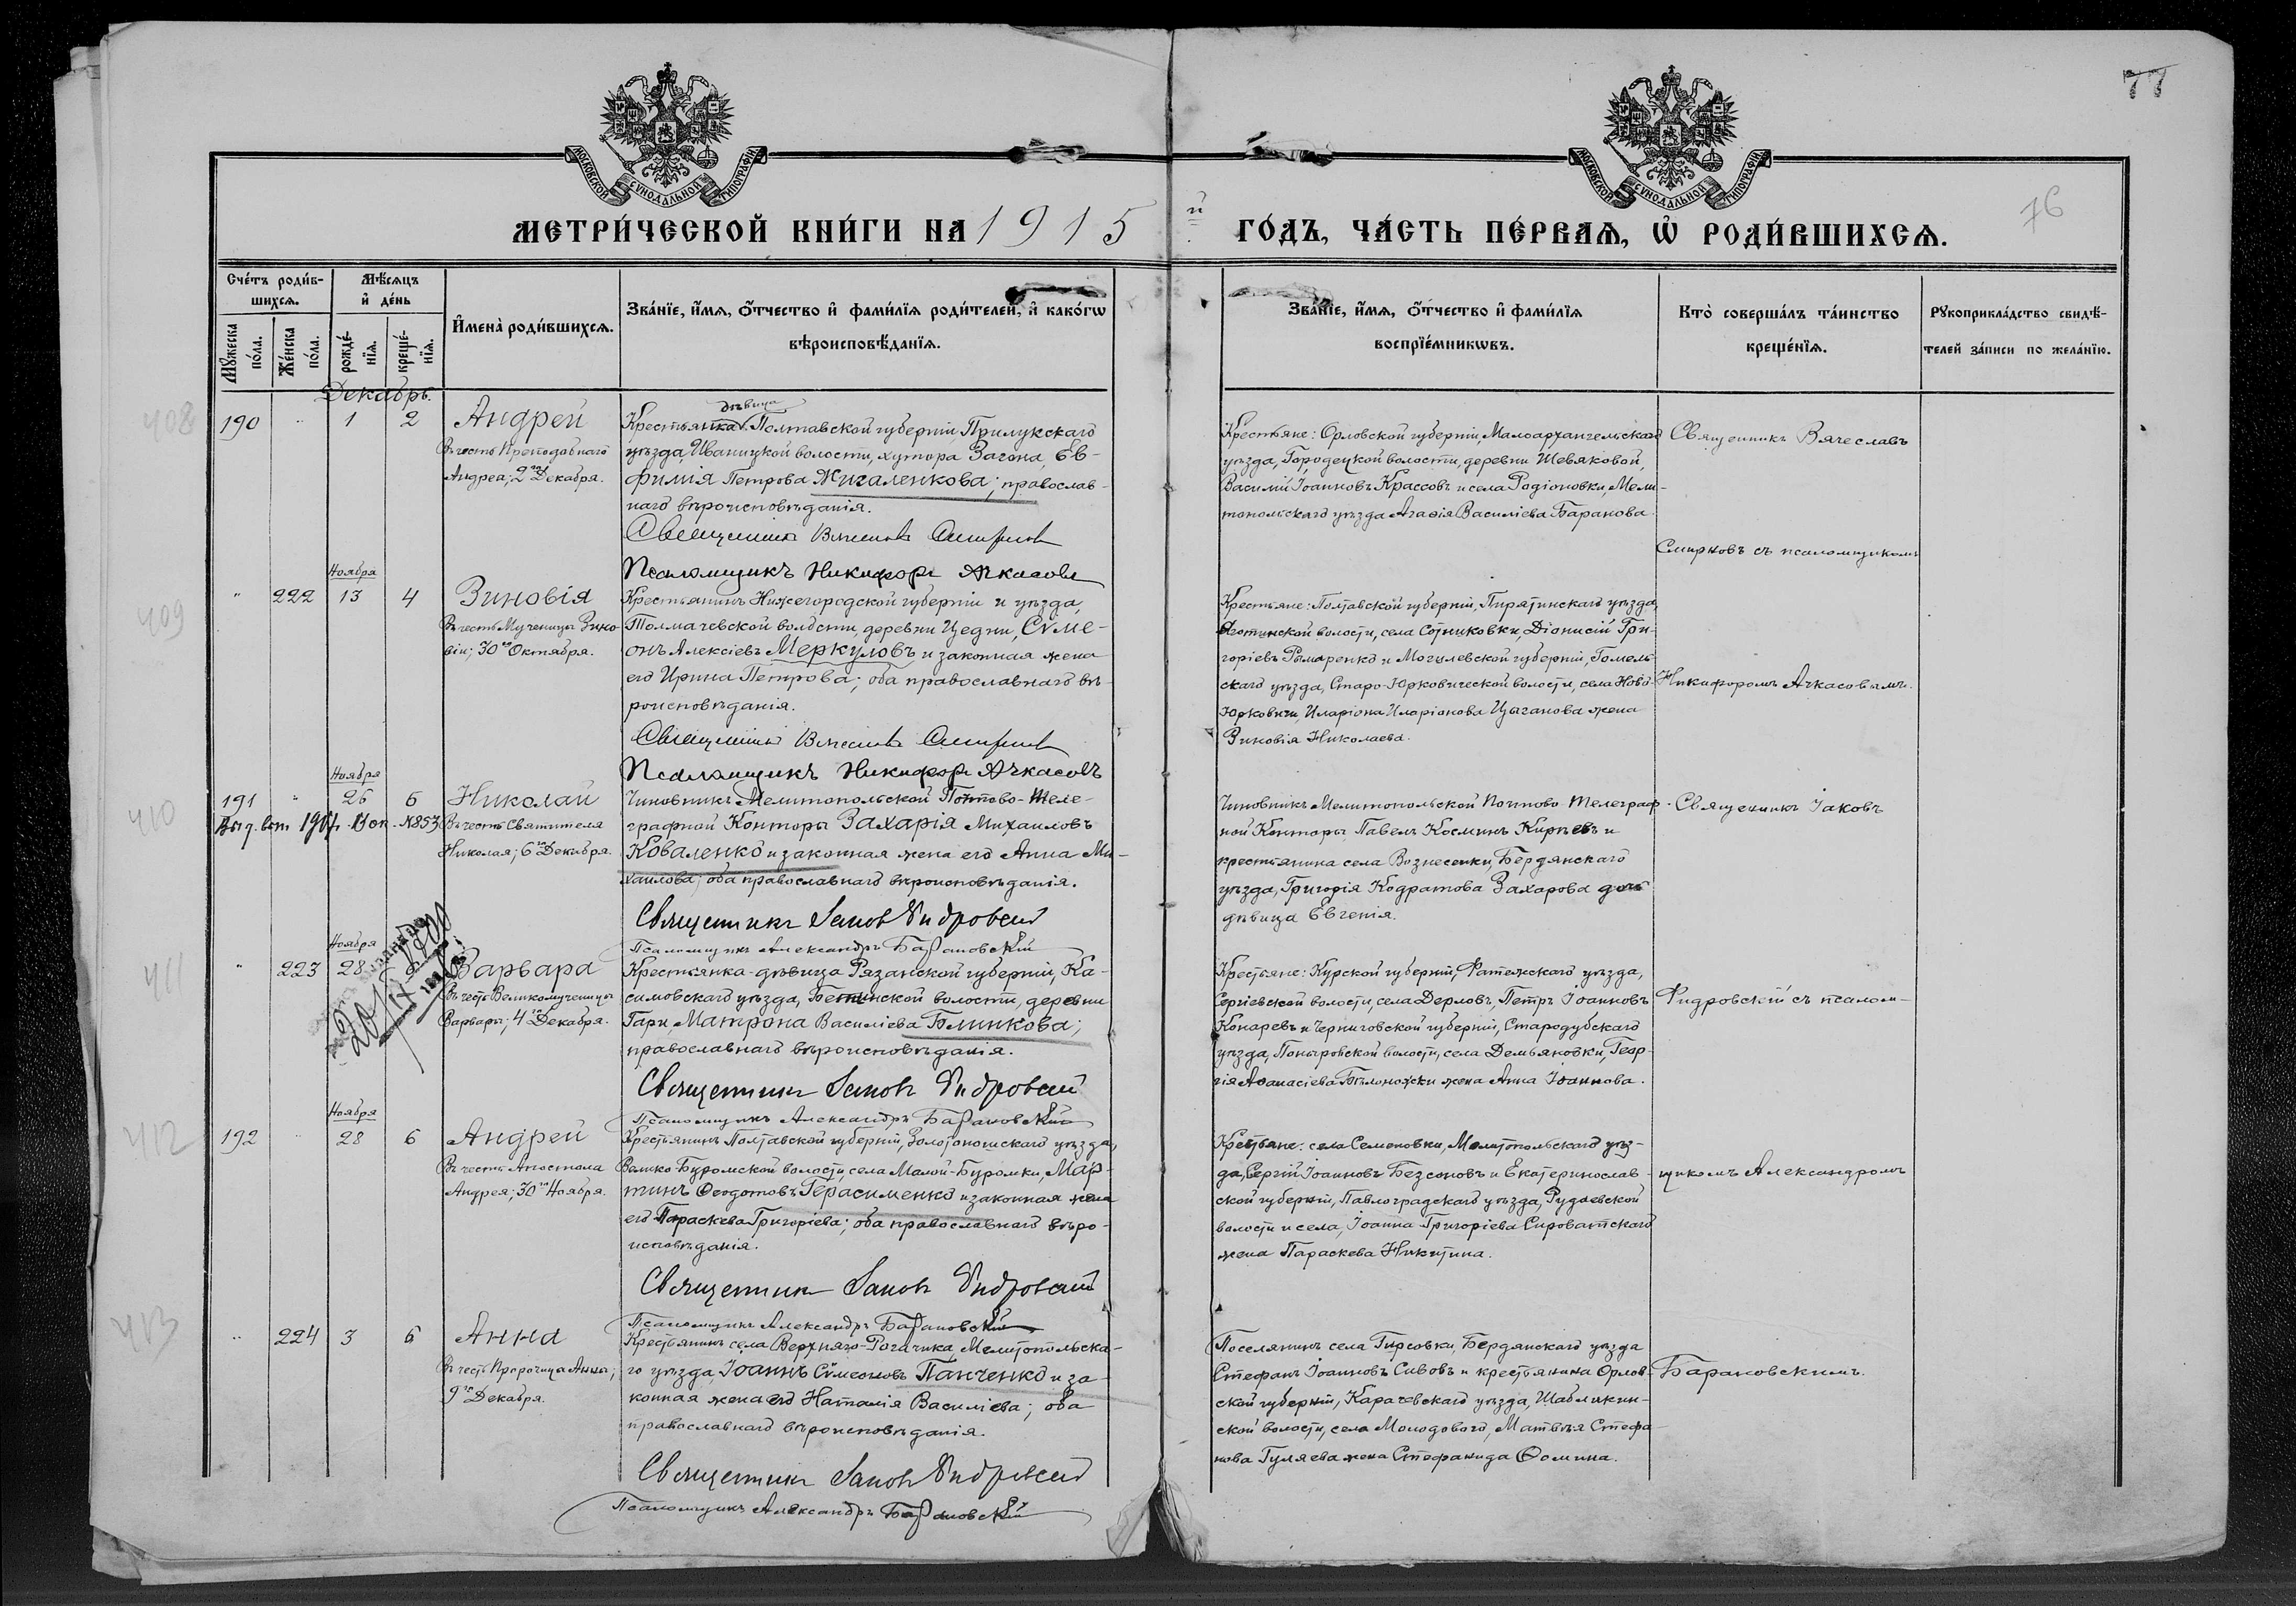 77
76
МОСКОВСКОЙ СѴНОДАЛЬНОЙ ТИПОГРАФІИ
МОСКОВСКОЙ СѴНОДАЛЬНОЙ ТИПОГРАФІИ
МЕТРИ́ЧЕСКОЙ КНИ́ГИ НА 1915 й ГО́ДЪ, ЧА́СТЬ ПЕ́РВАѦ, Ѡ҆ РОДИ́ВШИХСѦ.
Сче́тъ роди́в-
шихсѧ.
Мꙋжеска по́ла.
Же́нска по́ла.
Мѣ́сѧцъ
и҆ де́нь
рожде́-
нїѧ.
креще́-
нїѧ.
И҆мена̀ роди́вшихсѧ.
Зва́нїе, и҆́мѧ, о҆́тчество и҆ фами́лїѧ роди́телей, и҆ како́гѡ
вѣроисповѣ́данїѧ.
Зва́нїе, и҆́мѧ, о҆́тчество и҆ фами́лїѧ
воспрїе́мникѡвъ.
Кто̀ соверша́лъ та́инство
креще́нїѧ.
Рꙋкоприкла́дство свидѣ́-
телей за́писи по жела́нїю.
Декабрь.
408
190 " 1 2 Андрей
Въ честь Преподобнаго
Андрея; 2го Декабря.
дѣвица
Крестьянка Полтавской губерніи Прилукскаго
уѣзда, Иваницкой волости, хутора Загона, Ев-
фимія Петрова Жигаленкова; православ-
наго вѣроисповѣданія.
Священникъ Вячеславъ Смирновъ
Псаломщикъ Никифоръ Ачкасовъ
Крестьяне: Орловской губерніи, Малоархангельскаго
уѣзда, Городецкой волости, деревни Шевяковой,
Василій Іоанновъ Крассовъ и села Родіоновки, Мели-
топольскаго уѣзда Агаѳія Василіева Баранова.
Священникъ Вячеславъ
Смирновъ съ псаломщикомъ
409
Ноября
" 222 13 4 Зиновія
Въ честь Мученицы Зино-
віи; 30го Октября.
Крестьянинъ Нижегородской губерніи и уѣзда,
Толмачевской волости, деревни Цедни, Сѵме-
онъ Алексіевъ Меркуловъ и законная жена
его Ирина Петрова; оба православнаго вѣ-
роисповѣданія.
Священникъ Вячеславъ Смирновъ
Псаломщикъ Никифоръ Ачкасовъ
Крестьяне: Полтавской губерніи, Пирятинскаго уѣзда,
Яготинской волости, села Сотниковки, Діонисій Гри-
горіевъ Рымаренко и Могилевской губерніи, Гомель-
скаго уѣзда, Старо-Юрковической волости, села Ново-
Юрковичи, Иларіона Иларіонова Цыганова жена
Зиновія Николаева.
Никифоромъ Ачкасовымъ.
410
Ноября
191 " 26 6 Николай
Въ честь Святителя
Николая; 6го Декабря.
№853
Чиновникъ Мелитопольской Почтово-Теле-
графной Конторы Захарія Михаиловъ
Коваленко и законная жена его Анна Ми-
хаилова; оба православнаго вѣроисповѣданія.
Священникъ Іаковъ Фидровскій
Псаломщикъ Александръ Барановскій
Чиновникъ Мелитопольской Почтово-Телеграф-
ной Конторы Павелъ Косминъ Кирѣевъ и
крестьянина села Вознесенки, Бердянскаго
уѣзда, Григорія Кодратова Захарова дочь
дѣвица Евгенія.
Священникъ Іаковъ
411
Ноября
" 223 28 Варвара
Въ честь Великомученицы
Варвары; 4го Декабря.
Крестьянка-дѣвица Рязанской губерніи, Ка-
симовскаго уѣзда, Бетинской волости, деревни
Гари Матрона Василіева Блинкова;
православнаго вѣроисповѣданія.
Священникъ Іаковъ Фидровскій
Псаломщикъ Александръ Барановскій
Крестьяне: Курской губерніи, Фатежскаго уѣзда,
Сергіевской волости, села Дерловъ, Петръ Іоанновъ
Конаревъ и Черниговской губерніи, Стародубскаго
уѣзда, Понуровской волости, села Демьяновки, Геор-
гія Аѳанасіева Бѣлоножски жена Анна Іоаннова.
Фидровскій съ псалом-
412
Ноября
192 " 28 6 Андрей
Въ честь Апостола
Андрея; 30го Ноября.
Крестьянинъ Полтавской губерніи, Золотоношскаго уѣзда,
Велико-Буромской волости, села Малой-Буромки, Мар-
тинъ Ѳеодотовъ Герасименко и законная жена
его Параскева Григоріева; оба православнаго вѣро-
исповѣданія.
Священникъ Іаковъ Фидровскій
Псаломщикъ Александръ Барановскій
Крестьяне: села Семеновки, Мелитопольскаго уѣз-
да, Сергій Іоанновъ Безсоновъ и Екатеринослав-
ской губерніи, Павлоградскаго уѣзда, Рудаевской
волости и села, Іоанна Григоріева Сироватскаго
жена Параскева Никитина.
щикомъ Александромъ
413
" 224 3 6 Анна
Въ честь Пророчица Анна;
9го Декабря.
Крестьянинъ села Верхняго-Рогачика, Мелитопольска-
го уѣзда, Іоаннъ Сѵмеоновъ Панченко и за-
конная жена его Наталія Василіева; оба
православнаго вѣроисповѣданія.
Священникъ Іаковъ Фидровскій
Псаломщикъ Александръ Барановскій
Поселянинъ села Гирсовки, Бердянскаго уѣзда
Стефанъ Іоанновъ Сивовъ и крестьянина Орлов-
ской губерніи, Карачевскаго уѣзда, Шаблыкин-
ской волости, села Молодового, Матвѣя Стефа-
нова Гуляева жена Стефанида Ѳомина.
Барановскимъ.